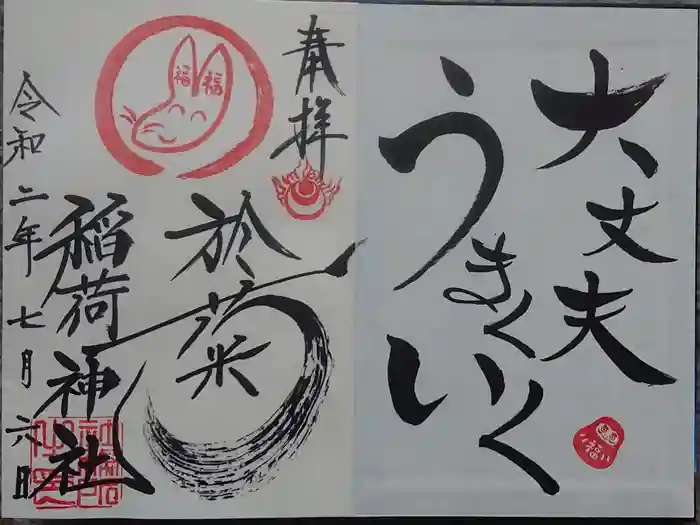 大丈夫
うまくいく
い
福
奉拝
福福
於菊
稲荷神社
令和二年七月六日